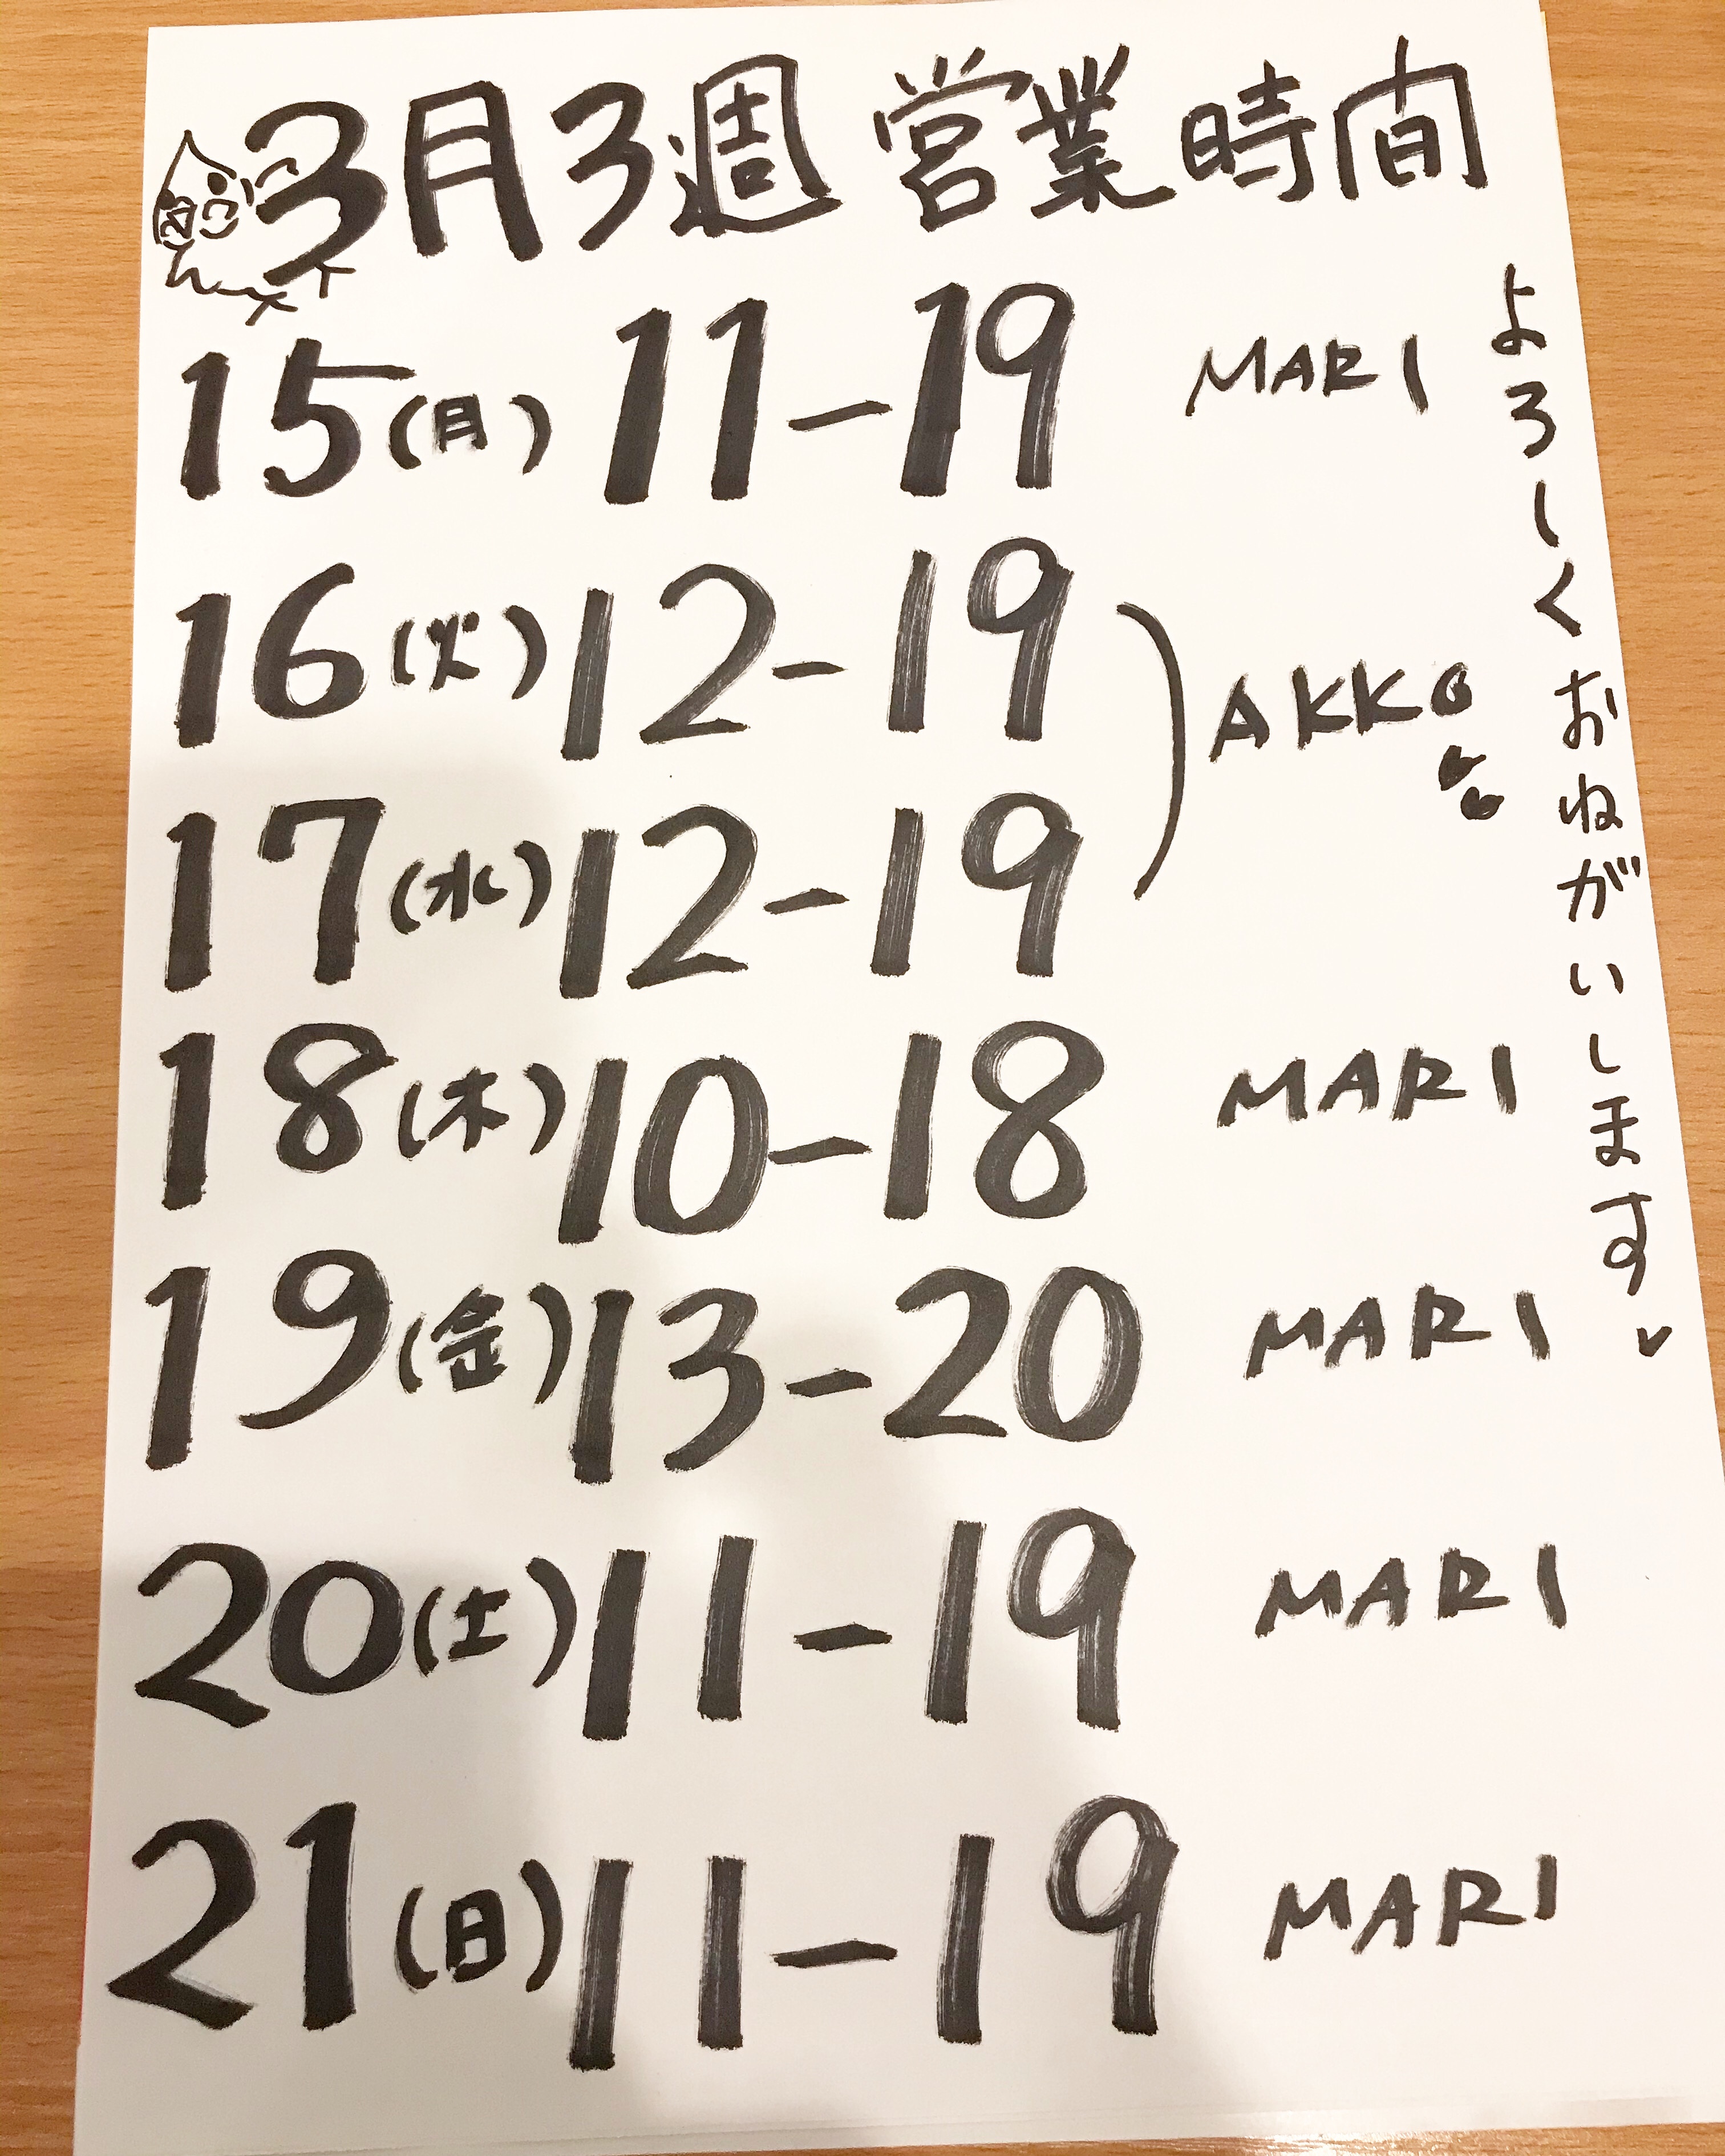 3月3週 営業時間
15(月) 11-19 MARI
16(火) 12-19
17(水) 12-19
AKKO
18(木) 10-18 MARI
19(金) 13-20 MARI
20(土) 11-19 MARI
21(日) 11-19 MARI
よろしくおねがいします